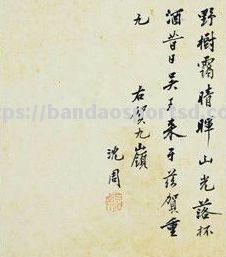 野樹靄晴暉山光落杯
酒昔日吴子来于兹賀重
九
右賀九嶺
沈周
https://bandaosportsd